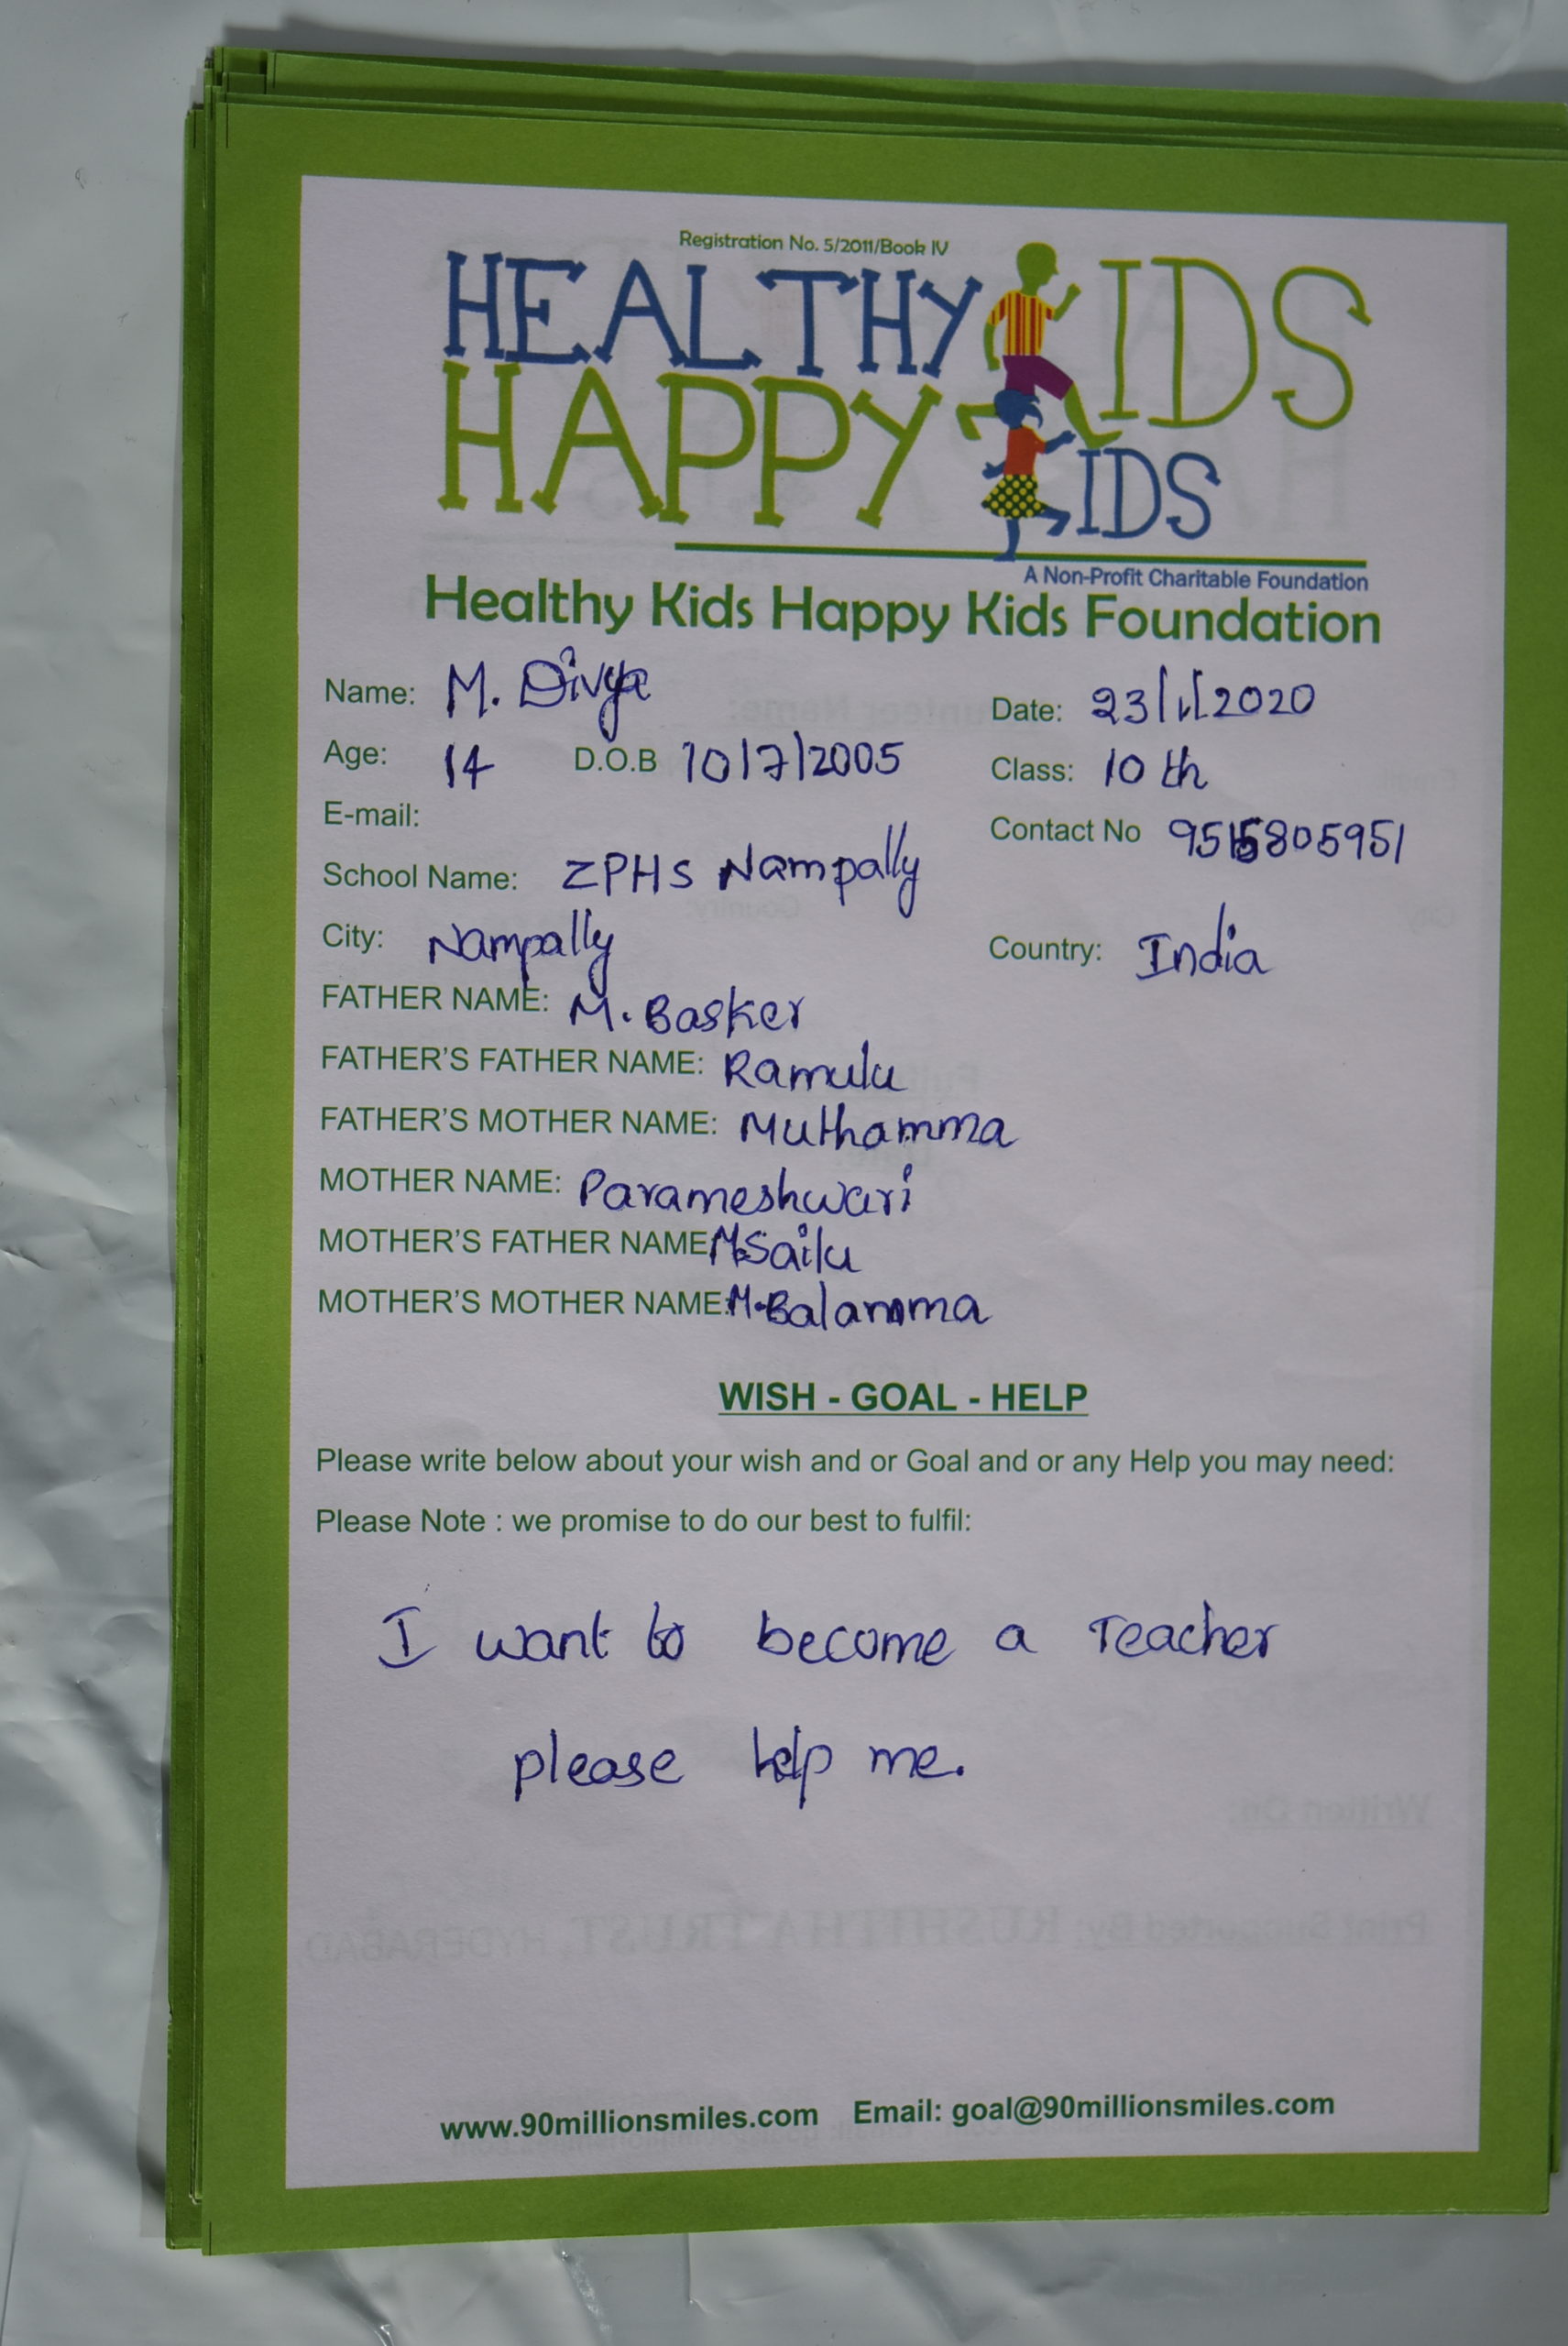 Registration No. 5/2011/Book IV
HEALTHY KIDS
HAPPY KIDS
A Non-Profit Charitable Foundation
Healthy Kids Happy Kids Foundation
Name: M. Divya Date: 23/1/2020
Age: 14 D.O.B 10/7/2005 Class: 10 th
E-mail: Contact No 9515805951
School Name: ZPHS Nampally
City: Nampally Country: India
FATHER NAME: M. Basker
FATHER'S FATHER NAME: Ramulu
FATHER'S MOTHER NAME: Muthamma
MOTHER NAME: Parameshwari
MOTHER'S FATHER NAME: M. Sailu
MOTHER'S MOTHER NAME: M. Balamma
WISH - GOAL - HELP
Please write below about your wish and or Goal and or any Help you may need:
Please Note : we promise to do our best to fulfil:
I want to become a Teacher
please help me.
www.90millionsmiles.com Email: goal@90millionsmiles.com